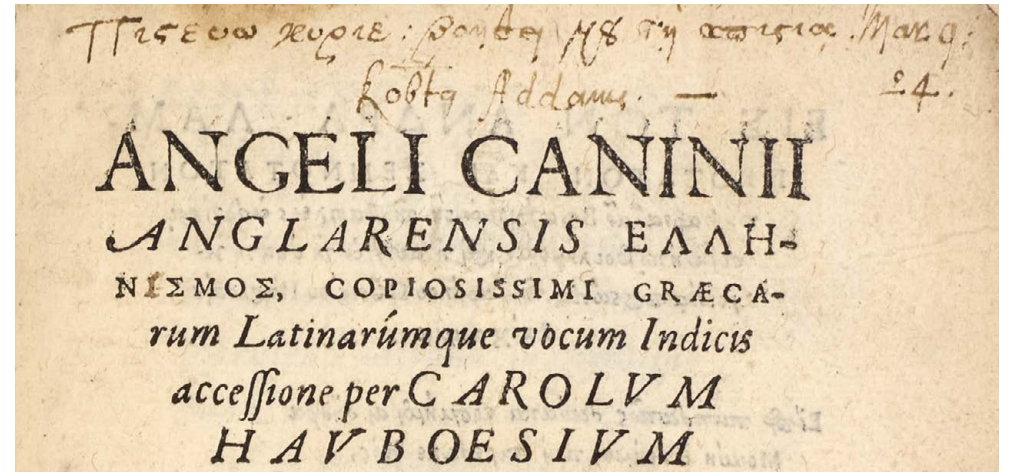 Πιςευω κυριε: βοηθει μȣ τῃ απιςια. Mar. 9.
24.
Robtq Addams. —
ANGELI CANINII
ANGLARENSIS ΕΛΛΗ-
ΝΙΣΜΟΣ, COPIOSISSIMI GRÆCA-
rum Latinarúmque vocum Indicis
acceſſione per CAROLVM
HAVBOESIVM